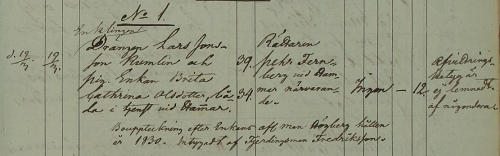 No 1.
Enklingen
d. 19/2. 19/2. Drängen Lars Jons-
son Humlin och
pig. Enkan Brita
Cathrina Olsdotter, bå-
da i tjenst vid Hamar.
39.
34.
Rådaren
pehr Fern-
berg vid Ham-
mar närvaran-
de.
Ingen — 12.
Afvidrings-
betyg är
ej lemnadt
af någondera
Bouppteckning efter Enkans afl. man Högberg hållen
år 1830. Intygadt af Fjerdingsman Fredriksson.